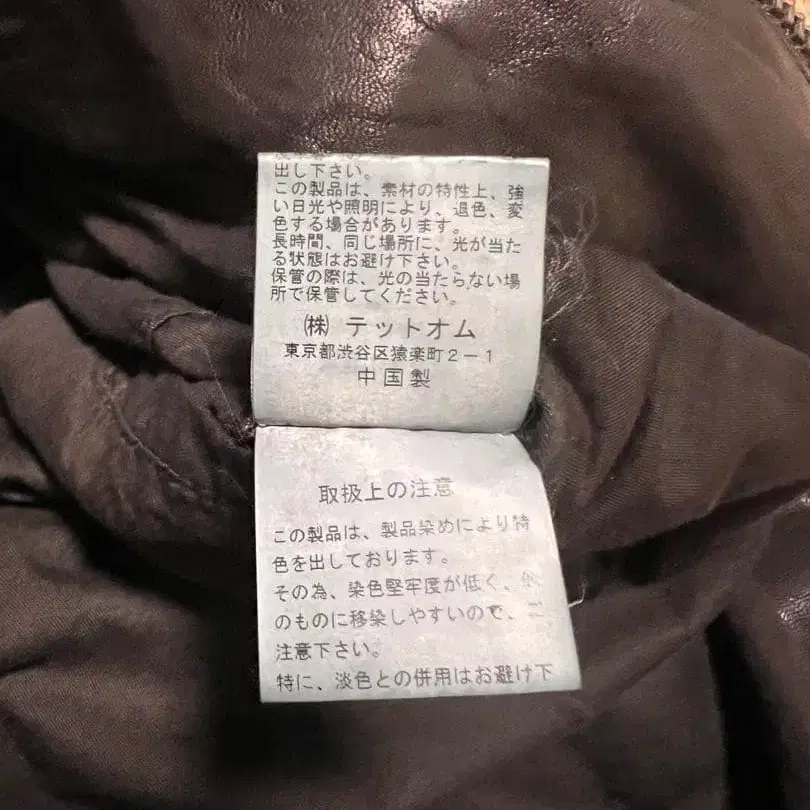 出し下さい。
この製品は、素材の特性上、強
い日光や照明により、退色、変
色する場合があります。
長時間、同じ場所に、光が当た
る状態はお避け下さい。
保管の際は、光の当たらない場
所で保管してください。
㈱ テットオム
東京都渋谷区猿楽町2-1
中国製
取扱上の注意
この製品は、製品染めにより特
色を出しております。
その為、染色堅牢度が低く、他
のものに移染しやすいので、ご
注意下さい。
特に、淡色との併用はお避け下